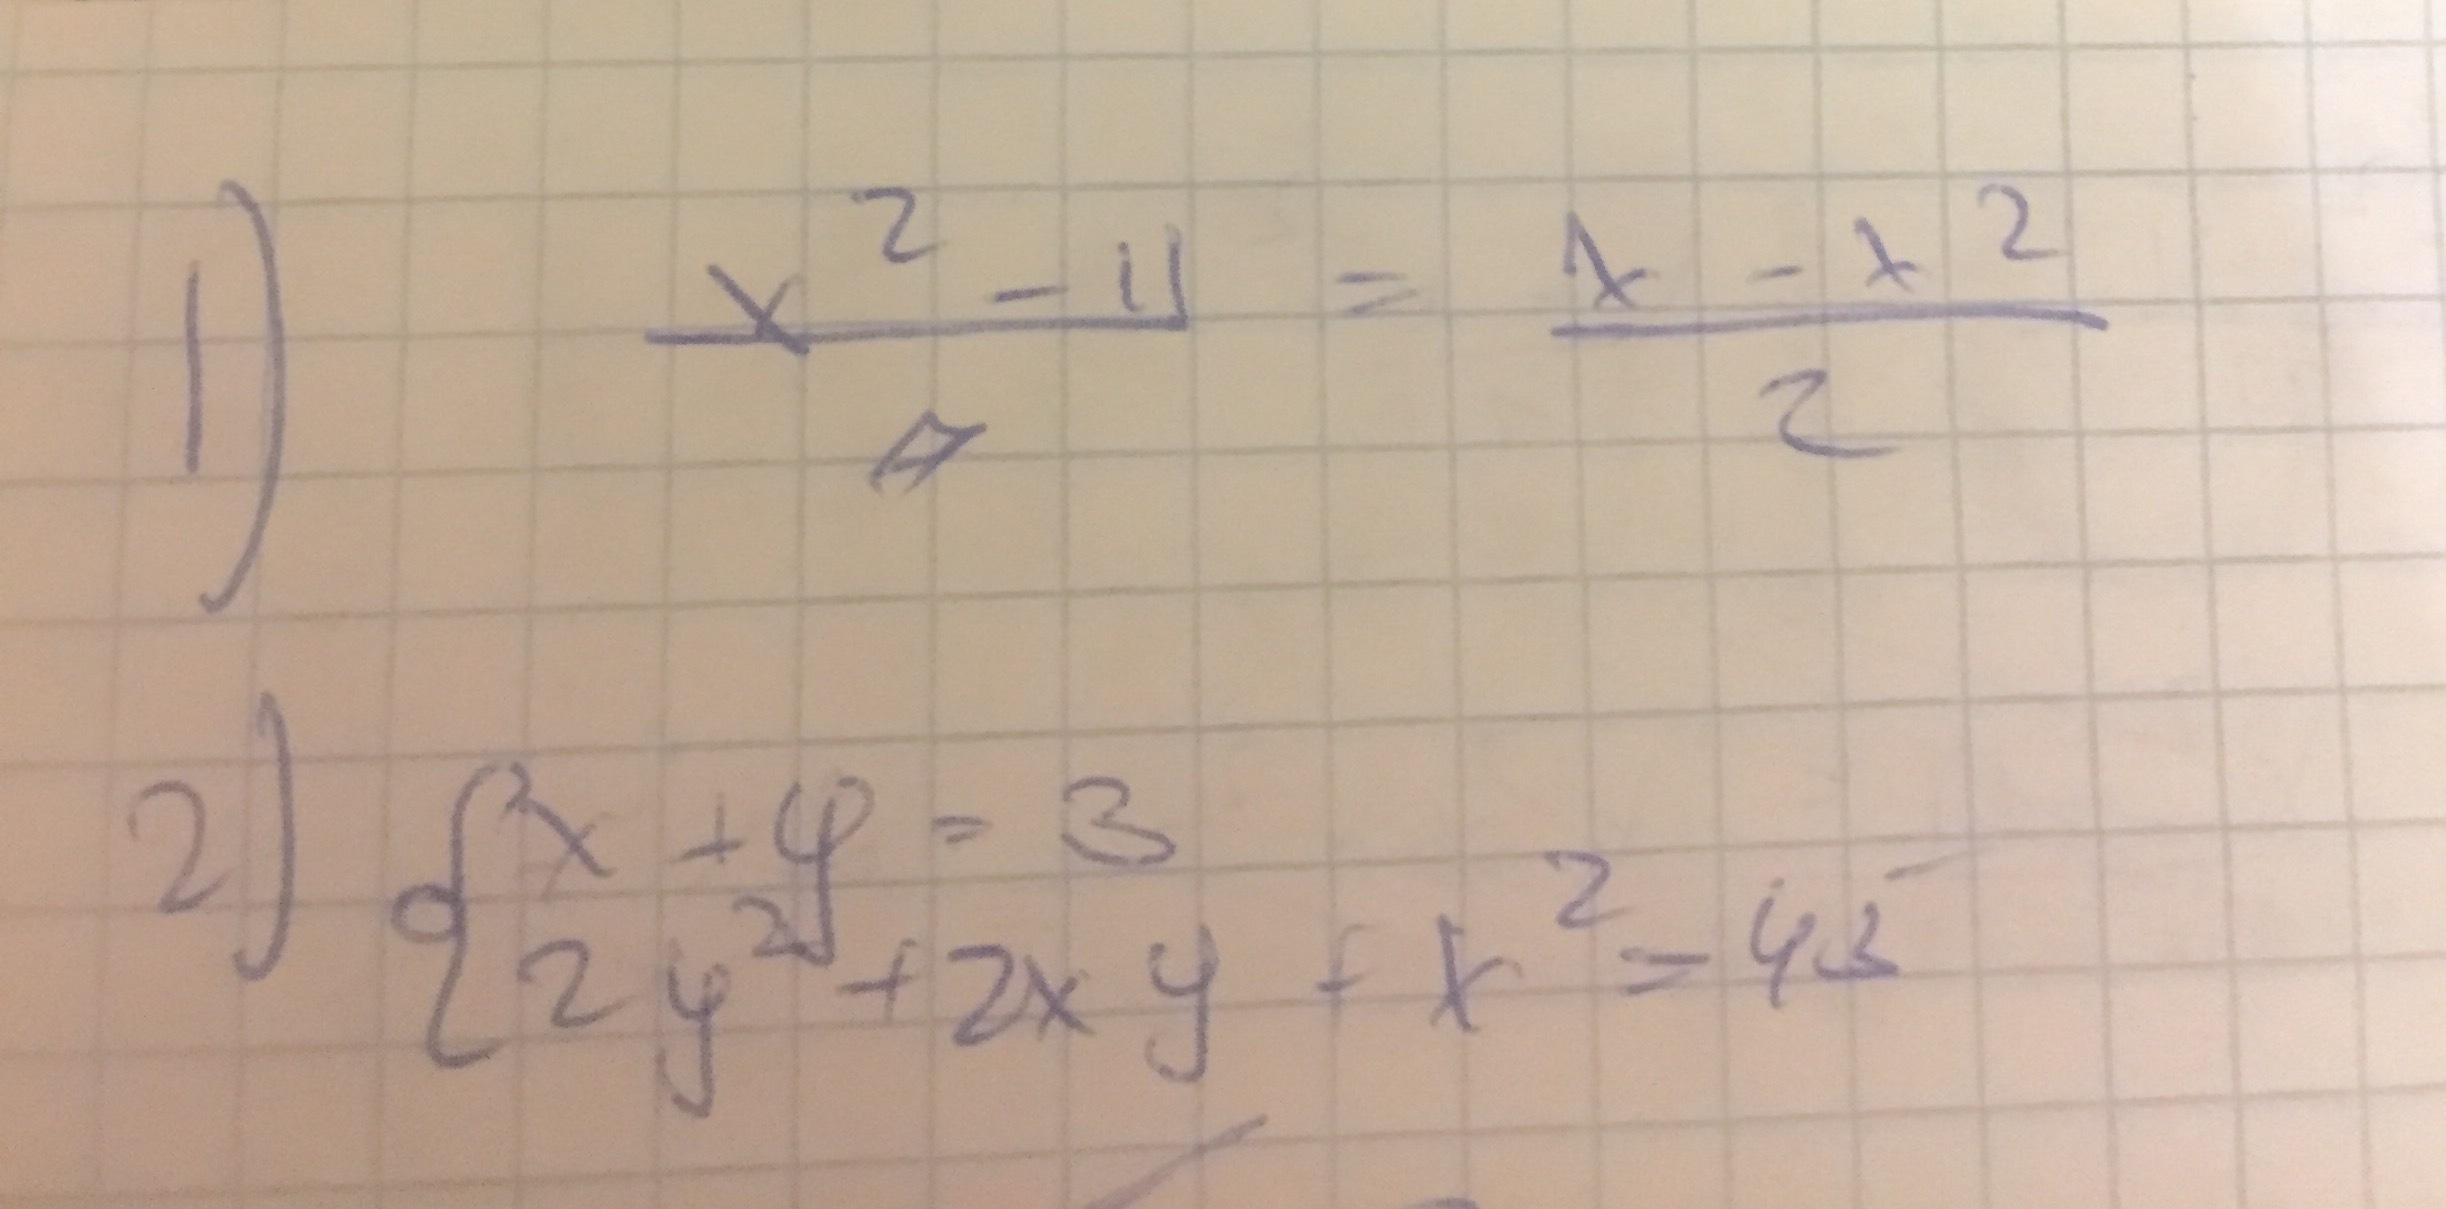 1) x² - 11 / = x - x² / 2
2) { x + y = 3
2y² + 2xy + x² = 45